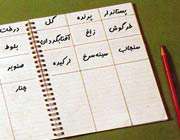 پستاندار پرنده گل درخت
خرگوش زاغ آفتابگردان بلوط
سنجاب سینه‌سرخ ارکیده صنوبر
چنار